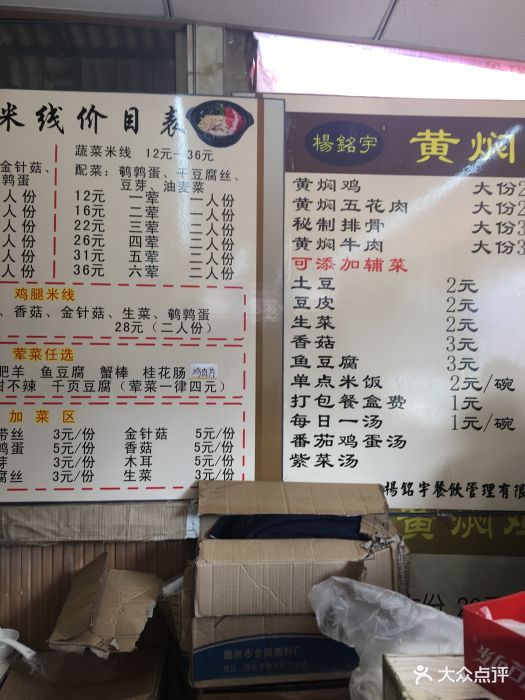 米线价目表
蔬菜米线 12元 36元
金针菇、 配菜：鹌鹑蛋、干豆腐丝、
鹑蛋 豆芽、油麦菜
人份 12元 一荤 一人份
人份 16元 二荤 一人份
人份 22元 三荤 二人份
人份 26元 四荤 二人份
人份 31元 五荤 二人份
人份 36元 六荤 二人份
鸡腿米线
、香菇、金针菇、生菜、鹌鹑蛋
28元（二人份）
荤菜任选
肥羊 鱼豆腐 蟹棒 桂花肠 鸡肉片
甜不辣 千页豆腐（荤菜一律四元）
加菜区
带丝 3元/份 金针菇 5元/份
鹑蛋 5元/份 香菇 5元/份
芽 3元/份 木耳 5元/份
腐丝 3元/份 生菜 3元/份
楊銘宇 黄焖
黄焖鸡 大份2
黄焖五花肉 大份2
秘制排骨 大份3
黄焖牛肉 大份3
可添加辅菜
土豆 2元
豆皮 2元
生菜 2元
香菇 3元
鱼豆腐 3元
单点米饭 2元/碗
打包餐盒费 1元
每日一汤 1元/碗
番茄鸡蛋汤
紫菜汤
楊銘宇餐飲管理有限
黄焖
德州市金源塑料厂
大众点评